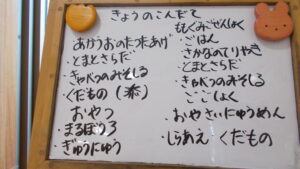 きょうのこんだて
あかうおのたつたあげ
・とまとさらだ
・きゃべつのみそしる
・くだもの(季)
おやつ
・まるぼうろ
・ぎゅうにゅう
・ごはん
・さかなのてりやき
・とまとさらだ
・きゃべつのみそしる
ごごしょく
・おやさいにゅうめん
・しらあえ くだもの